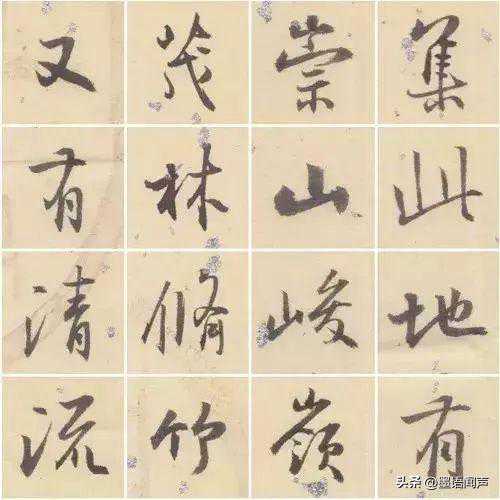 集此地有
崇山峻嶺
茂林脩竹
又有清流
头条 @墨语闻声